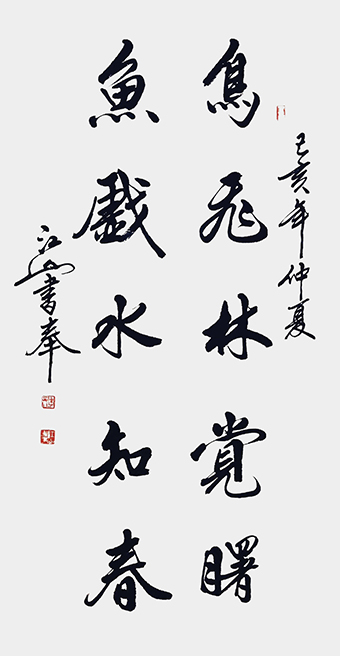 己亥年仲夏
鳥飛林覺曙
魚戲水知春
江山書奉